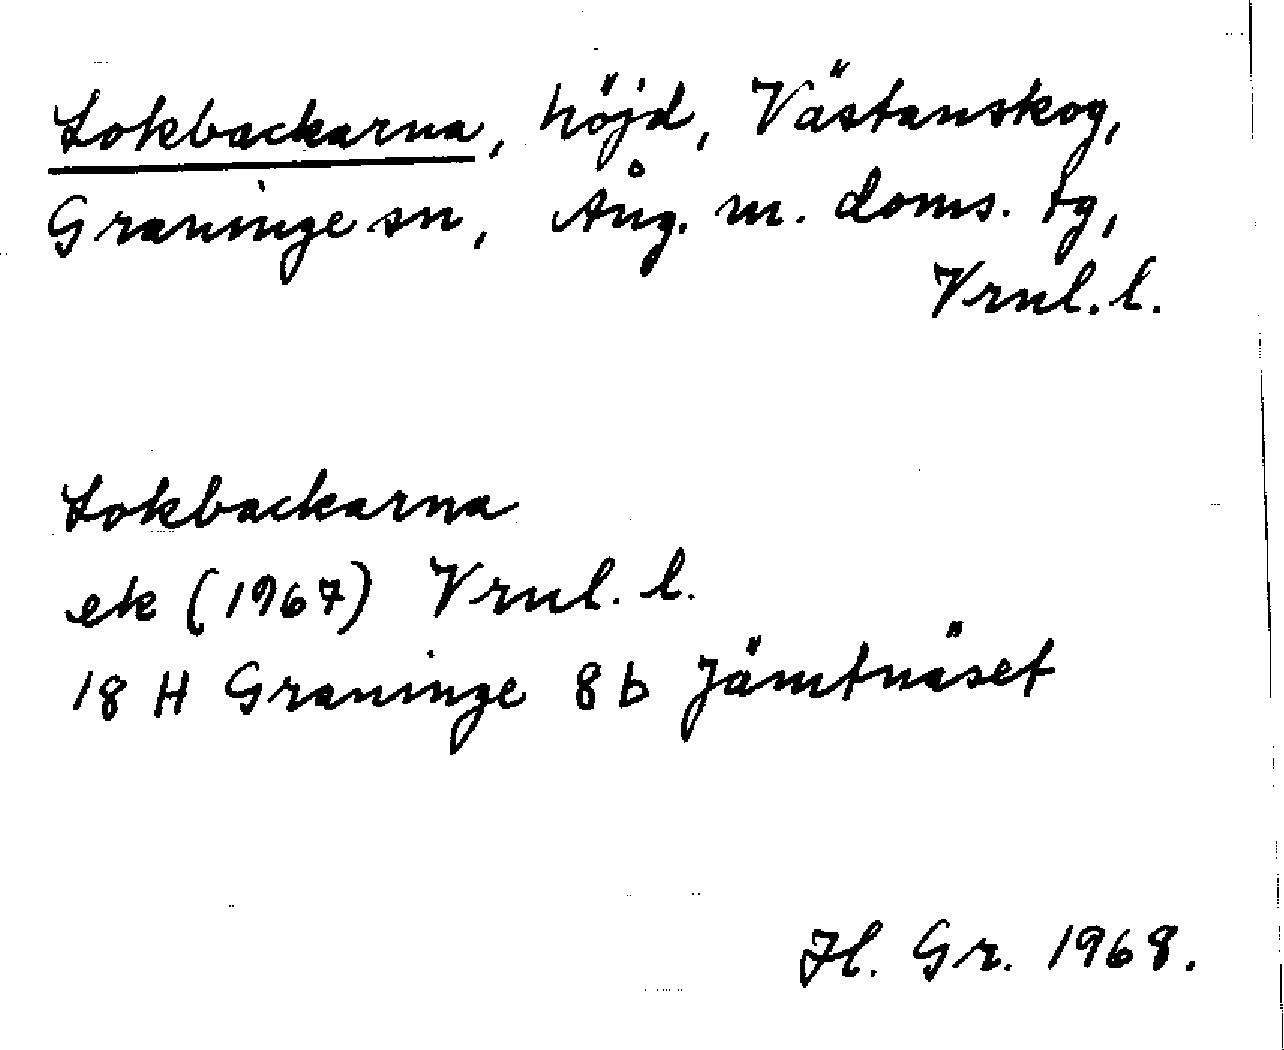 Lokbackarna, höjd, Västanskog,
Graninge sn, Ång. m. doms. tg,
Vrnl. l.
Lokbackarna
ek (1967) Vrnl. l.
18 H Graninge 8 b Jämtnäset
Hl. Gr. 1968.